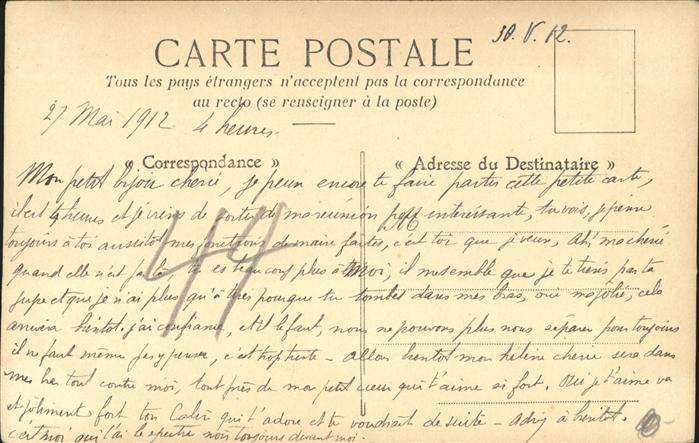 30. V. 12.
CARTE POSTALE
Tous les pays étrangers n'acceptent pas la correspondance
au recto (se renseigner à la poste)
27 Mai 1912 4 heures.
« Correspondance »
« Adresse du Destinataire »
Mon petit bijou cherie, je peux encore te faire partir cette petite carte,
il est 4 heures et je viens de sortir de ma réunion intéressante, tu vois, je pense
toujours à toi aussitot mes de faites, c'est toi que je veux. Ah! ma cherie
quand elle n'est là tu es beaucoup plus à Moi, il me semble que je te tiens par ta
jupe et que je n'ai plus qu'à tirer pour que tu tombes dans mes bras, oui ma jolie, cela
arrivera bientot. j'ai confiance, et il le faut, nous ne pouvons plus nous séparer pour toujours
il ne faut même pas y penser, c'est trop triste - Allons bientot mon hélène cherie sera dans
mes bras tout contre moi, tout près de mon petit cœur qui t'aime si fort. Oui je t'aime va
et joliment fort ton qui t'adore et te voudrait de suite - à bientot.
c'est moi qui l'ai le spectre nous toujours devant moi.
44